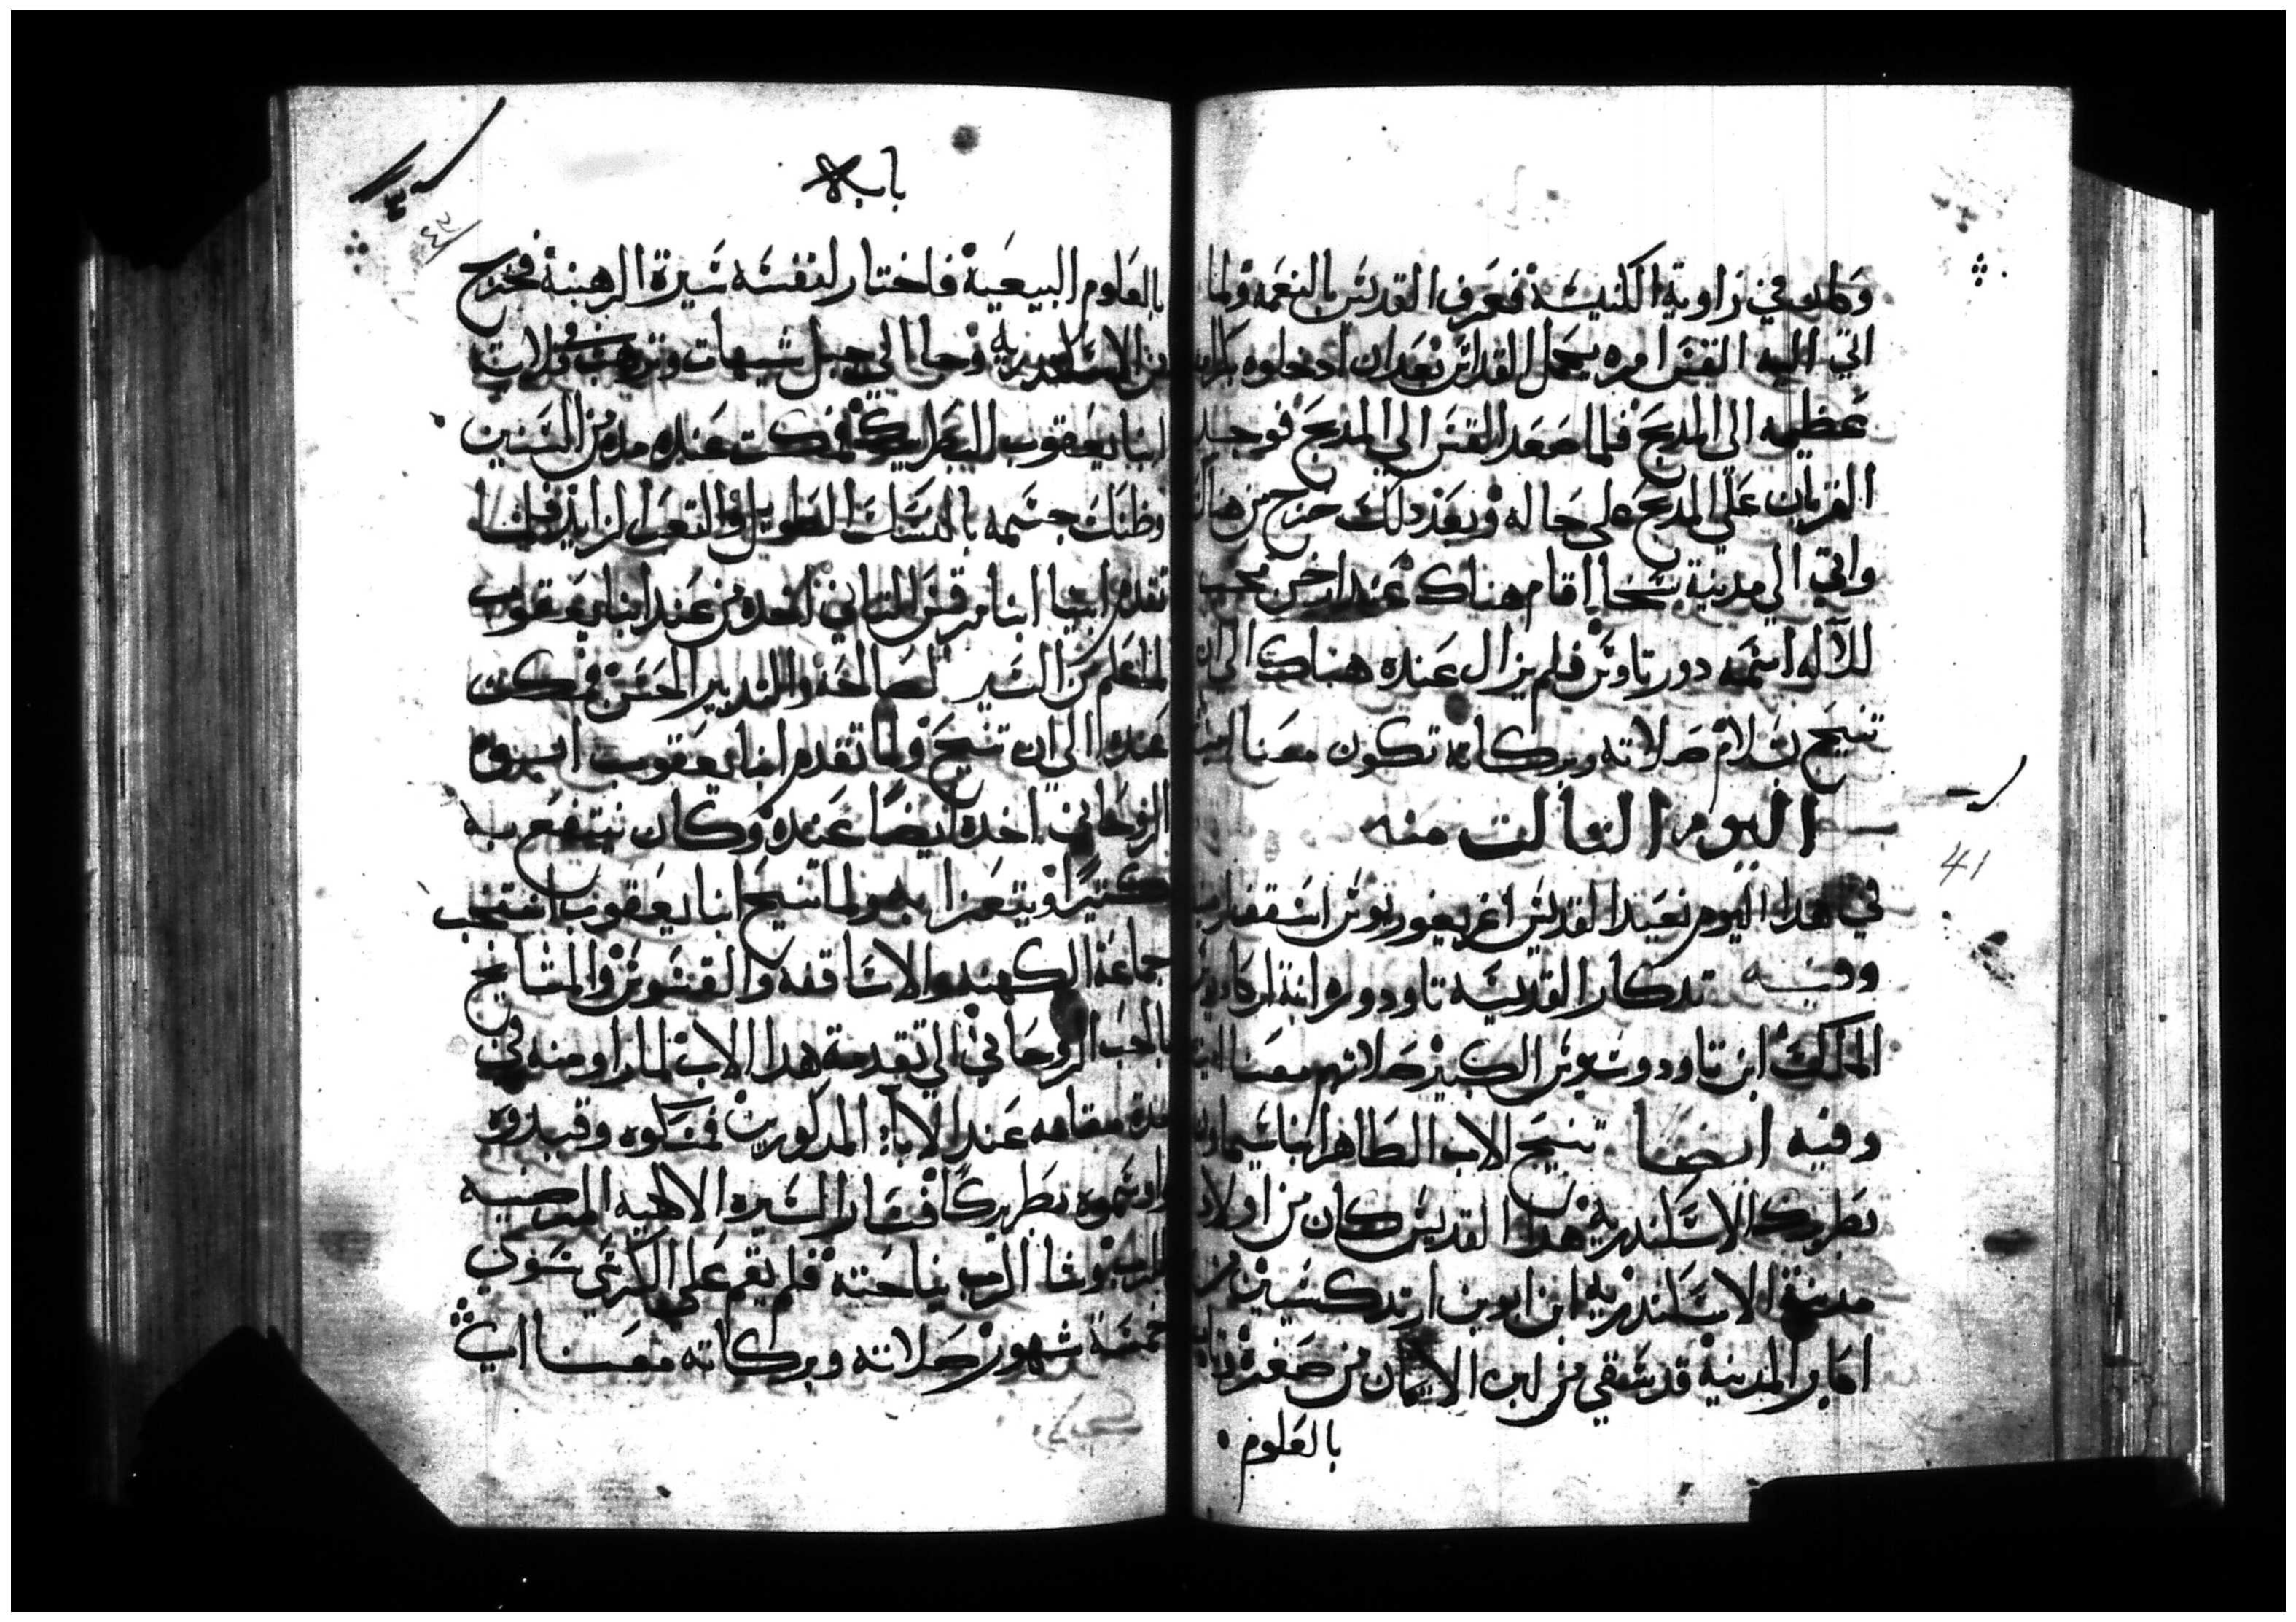 وكانو في زاوية الكنيسة فعرف القديس بالنعمة ولما
اتي اليه القس امره بحمل القداس بعد ان ادخلوه
عظيمه الى المدبح فلما صعد القس الي المدبح فوجد
القربان على المدبح على حاله وبعد دلك خرج من هناك
واتي الي مدينة سخا اقام هناك عند ارخن محب
للاله اسمه دورتاوس فلم يزال عنده هناك الى ان
تنيح بسلام صلاته وبركاته تكون معنا امين
اليوم التالت منه
في هدا اليوم نعيد القديس اغريغوريوس اسقف
وفيه تدكار القديسه تاودوره ابنة اركاديوس
الملك ابن تاودوسيوس الكبير صلاتهم معنا امين
وفيه ايضا تنيح الاب الطاهر ابنا سيماون
بطريرك الاسكندريه هدا القديس كان من اولاد
مدينة الاسكندريه ابن ابوين ارتدكسيين من
اكابر المدينة قد سقي من لبن الايمان من صغره
بالعلوم
بابه
٤١
41
بالعلوم البيعية فاختار لنفسه سيرة الرهبنة فخرج
من الاسكندريه وجا الي جبل شيهات وترهب في قلاية
ابنا يعقوب البطريرك فمكت عنده مده من السنين
جسمه بالنسك الطويل والتعب الزايد فلما
تقدم ابينا ابنا مرقس التاني اخده من عند ابنا يعقوب
لما علم من السير الصالحة والتدبير الحسن فمكت
عنده الي ان تنيح ولما تقدم ابنا يعقوب
الروحاني اخده ايضًا عنده وكان ينتفع به
كتيرًا ويتعزا به ولما تنيح ابنا يعقوب انتخب
جماعة الكهنه والاساقفه والقسوس والمشايخ
بالحب الروحاني الي تقدمة هدا الاب لما راو منه في
مدة مقامه عند الابا المدكورين فمسكوه وقيدوه
واوسموه بطريركًا فسار السيره الالاهيه المرضيه
للرب وشا الرب نياحته فلم يقم على الكرسي سوي
خمسة شهور صلاته وبركاته معنا امين